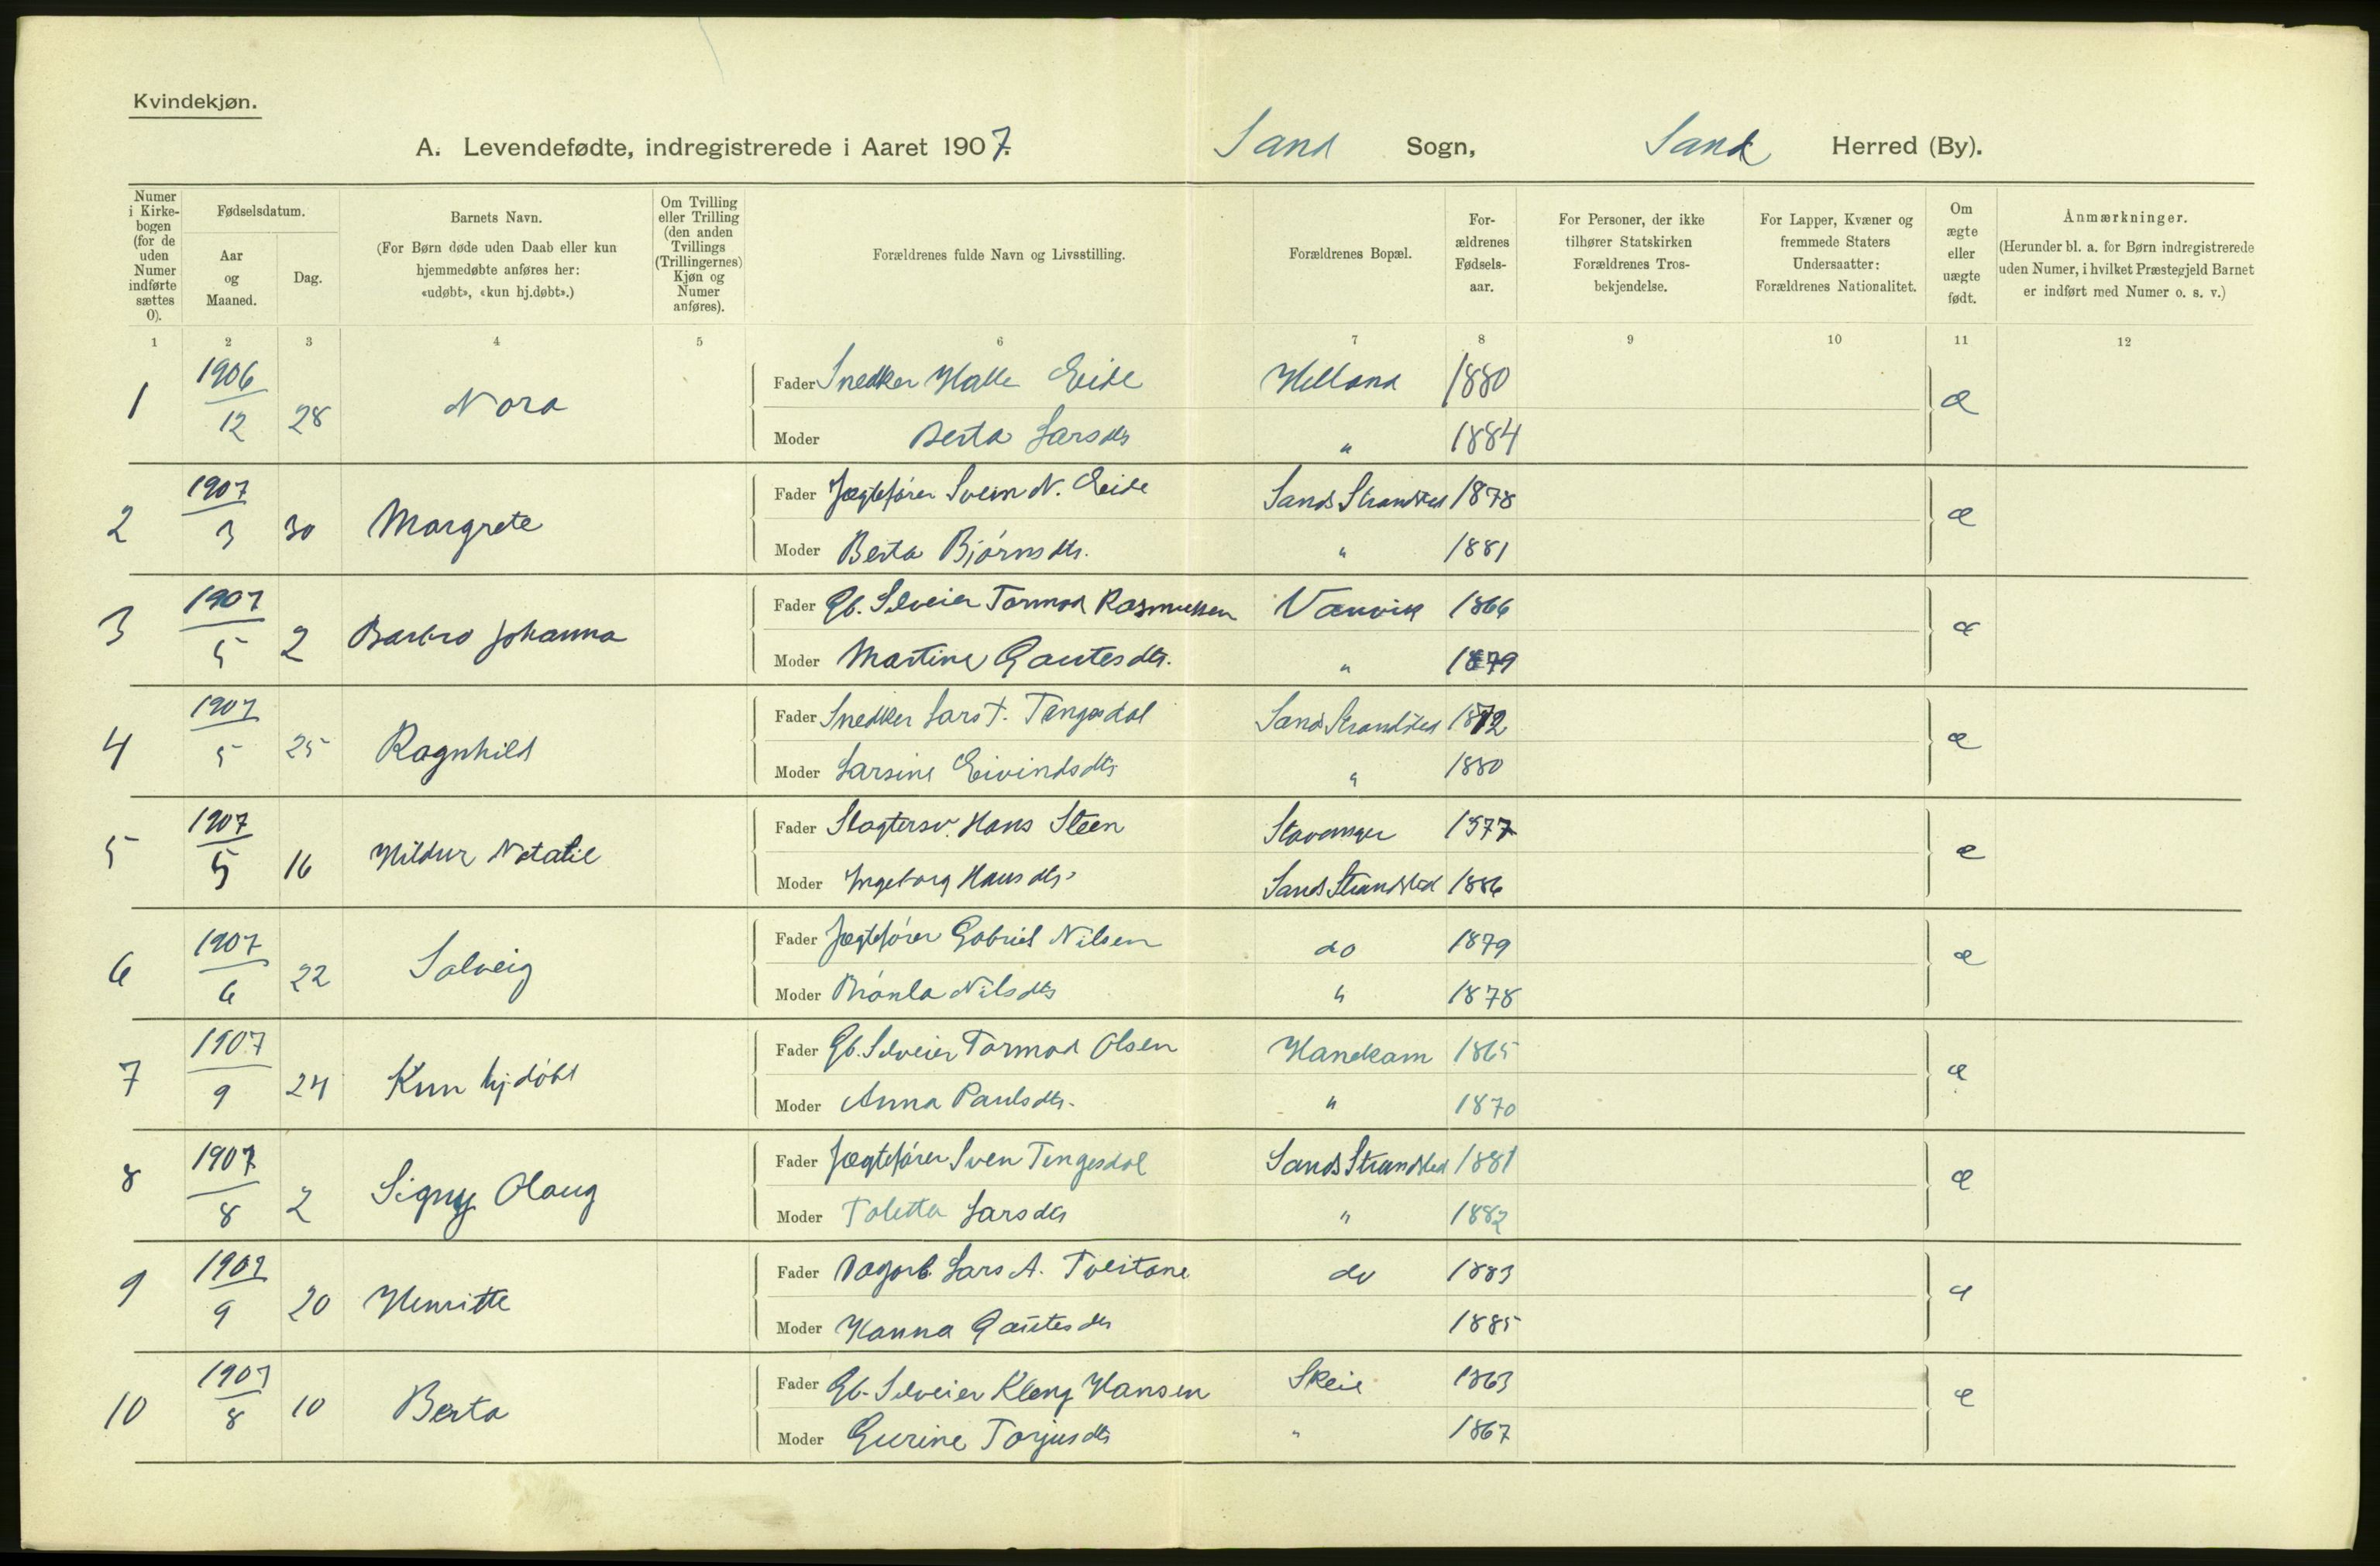 Kvindekjøn.
A. Levendefødte, indregistrerede i Aaret 1907. Sand Sogn, Sand Herred (By).
Numer i Kirke-bogen (for de uden Numer indførte sættes 0).
Fødselsdatum.
Aar og Maaned.
Dag.
Barnets Navn.
(For Børn døde uden Daab eller kun hjemmedøbte anføres her: «udøbt», «kun hj.døbt».)
Om Tvilling eller Trilling (den anden Tvillings (Trillingernes) Kjøn og Numer anføres).
Forældrenes fulde Navn og Livsstilling.
Forældrenes Bopæl.
For-ældrenes Fødsels-aar.
For Personer, der ikke tilhører Statskirken Forældrenes Tros-bekjendelse.
For Lapper, Kvæner og fremmede Staters Undersaatter: Forældrenes Nationalitet.
Om ægte eller uægte født.
Anmærkninger.
(Herunder bl. a. for Børn indregistrerede uden Numer, i hvilket Præstegjeld Barnet er indført med Numer o. s. v.)
1 2 3 4 5 6 7 8 9 10 11 12
1 1906/12 28 Nora Fader Snedker Halle Eide Helland 1880 æ
Moder Berta Larsdtr " 1884
2 1907/3 30 Margrete Fader Jægtefører Svein N. Eide Sands Strandsted 1878 æ
Moder Berta Bjørnsdtr. " 1881
3 1907/5 2 Barbro Johanna Fader Gb. Selveier Tormod Rasmussen Vanvik 1866 æ
Moder Martine Gautesdtr. " 1879
4 1907/5 25 Ragnhild Fader Snedker Lars T. Tengesdal Sands Strandsted 1872 æ
Moder Larsine Eivindsdtr " 1880
5 1907/5 16 Hildur Natalie Fader Slagtersv. Hans Steen Stavanger 1877 æ
Moder Ingeborg Hansdtr. Sands Strandsted 1886
6 1907/6 22 Solveig Fader Jægtefører Gabriel Nilsen do 1879 æ
Moder Nilsdtr " 1878
7 1907/9 24 Kun hj.døbt Fader Gb. Selveier Tormod Olsen Hanekam 1865 æ
Moder Anna Paulsdtr. " 1870
8 1907/8 2 Signy Olaug Fader Jægtefører Sven Tengesdal Sands Strandsted 1881 æ
Moder Toletta Larsdtr " 1882
9 1907/9 20 Henritte Fader Dagarb. Lars A. Tveitane do 1883 æ
Moder Hanna Gautesdtr 1885
10 1907/8 10 Berta Fader Gb. Selveier Kleng Hansen Skeie 1863 æ
Moder Gurine Torjusdtr " 1867